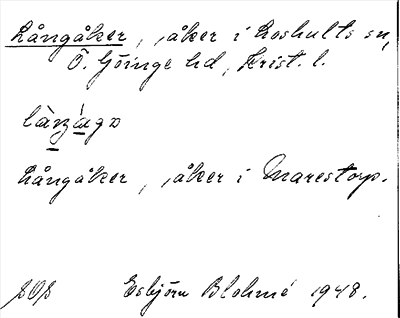 Långåker, åker i Loshults sn,
Ö. Göinge hd, Krist. l.
Långåker, åker i Marestorp.
Esbjörn Blohmé 1948.